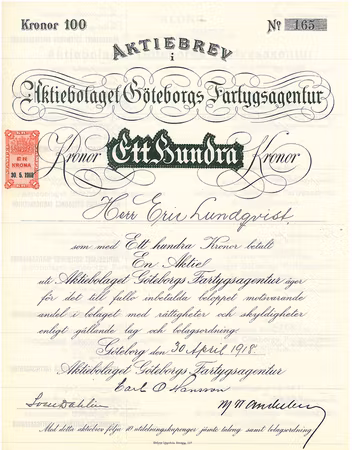 Kronor 100
No 165
AKTIEBREV
i
Aktiebolaget Göteborgs Fartygsagentur
Kronor Ett Hundra Kronor
EN
KRONA
30. 5. 1918
Herr Eric Lundqvist
som med Ett hundra Kronor betalt
En Aktie
uti Aktiebolaget Göteborgs Fartygsagentur äger
för det till fullo inbetalda beloppet motsvarande
andel i bolaget med rättigheter och skyldigheter
enligt gällande lag och bolagsordning.
Göteborg den 30 April 1918.
Aktiebolaget Göteborgs Fartygsagentur
Carl O Hansson
Sven Dahlin
Med detta aktiebrev följa 10 utdelningskuponger jämte talong samt bolagsordning.